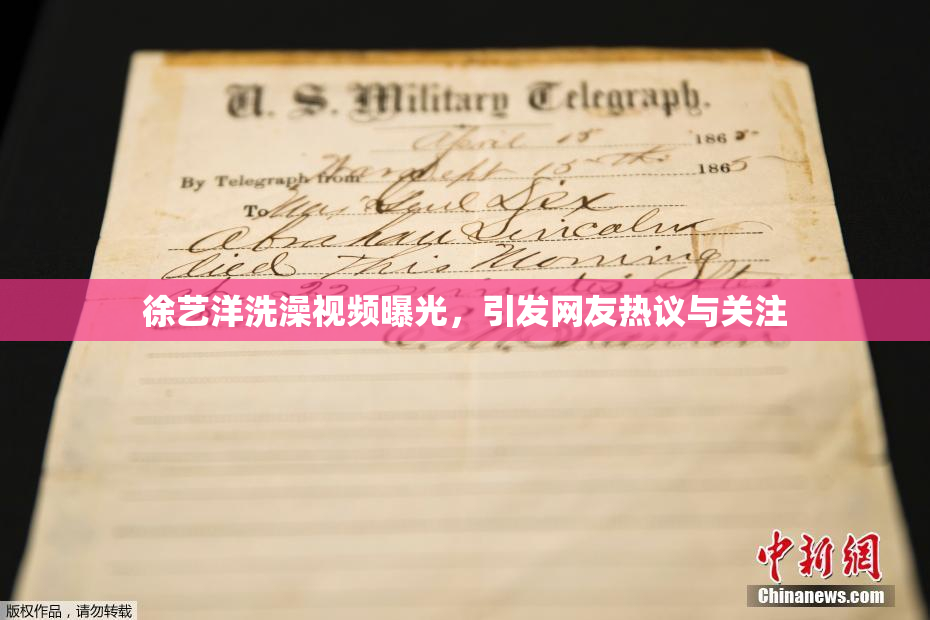 U. S. Military Telegraph.
April 15 1865
By Telegraph from War Dept 15th 1865
To Maj Genl Dix
Abraham Lincoln
died This Morning
at 22 minutes after
徐艺洋洗澡视频曝光，引发网友热议与关注
E. M. Stanton
中新网
Chinanews.com
版权作品，请勿转载